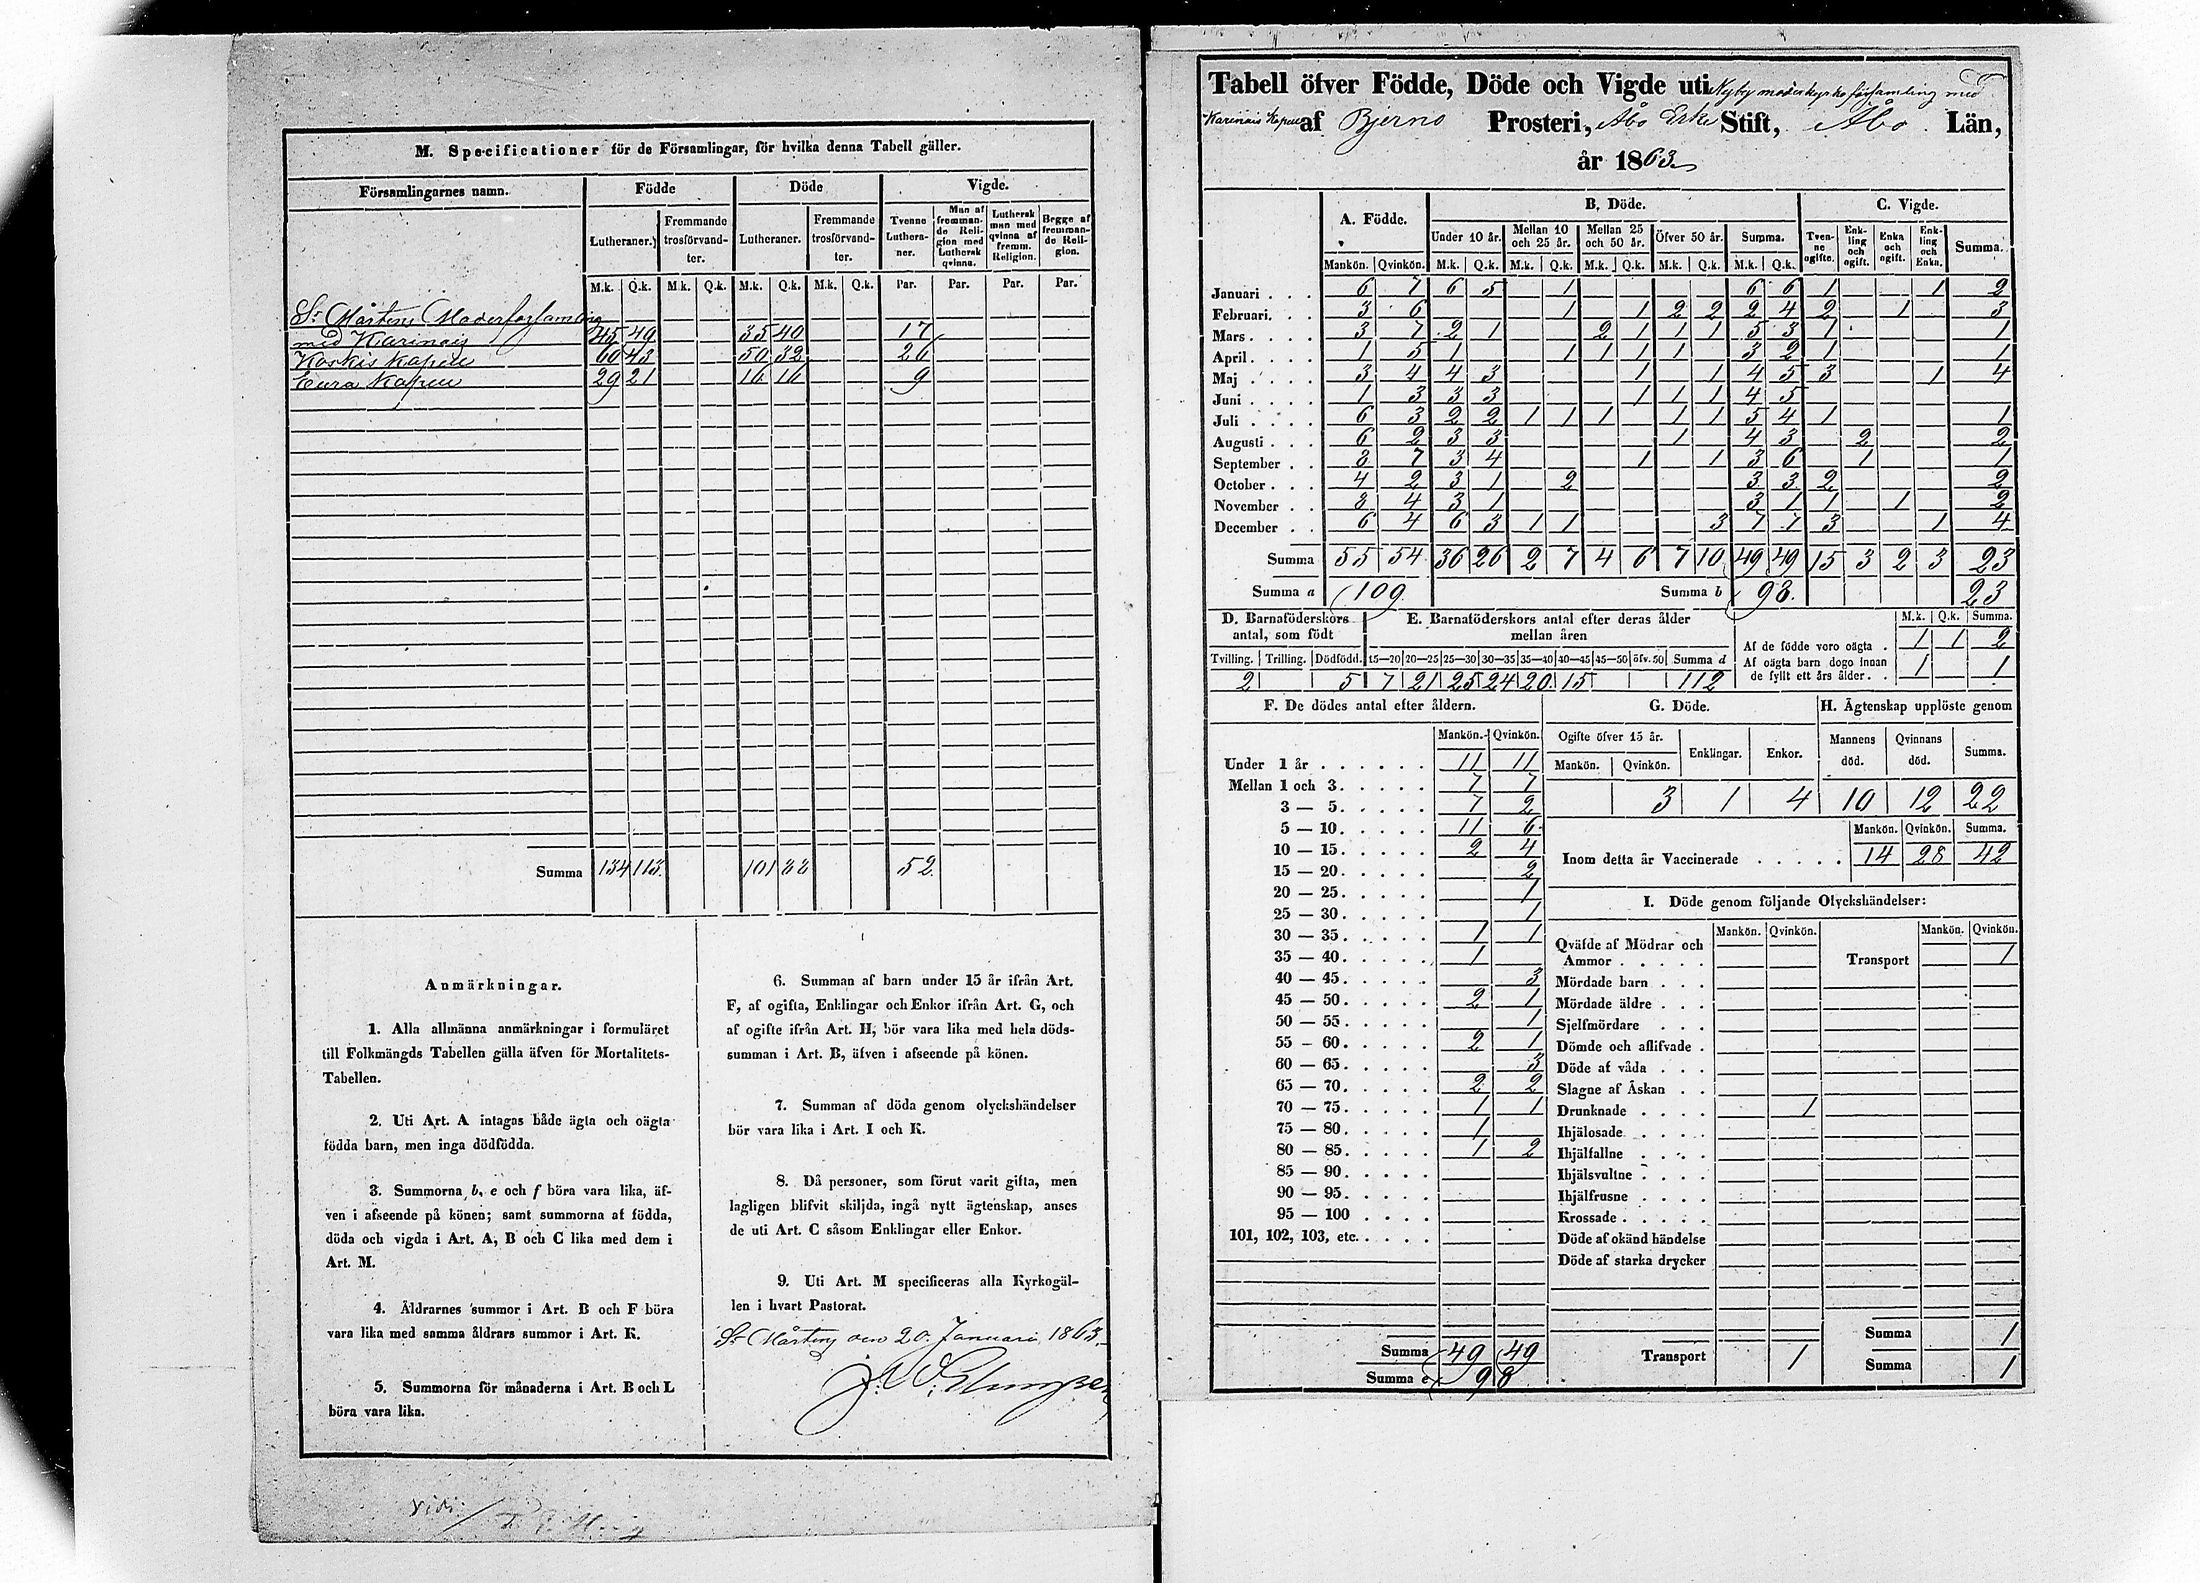 M. Specificationer för de Församlingar, för hvilka denna Tabell gäller.
Församlingarnes namn. Födde Döde Vigde.
Lutheraner. Fremmande trosförvandter. Lutheraner. Fremmande trosförvandter. Tvenne Lutheraner. Man af fremmande Religion med Luthersk qvinna. Luthersk man med qvinna af fremm. Religion. Begge af fremmande Religion.
M.k. Q.k. M.k. Q.k. M.k. Q.k. M.k. Q.k. Par. Par. Par. Par.
St Mårtens Moderforsamling
med Karinais 45 49 35 40 17
Koskis Kapell 60 43 50 32 26
Eura Kapell 29 21 16 16 9
Summa 134 113 101 88 52
Anmärkningar.
1. Alla allmänna anmärkningar i formuläret
till Folkmängds Tabellen gälla äfven för Mortalitets-
Tabellen.
2. Uti Art. A intagas både ägta och oägta
födda barn, men inga dödfödda.
3. Summorna b, e och f böra vara lika, äf-
ven i afseende på könen; samt summorna af födda,
döda och vigda i Art. A, B och C lika med dem i
Art. M.
4. Åldrarnes summor i Art. B och F böra
vara lika med samma åldrars summor i Art. K.
5. Summorna för månaderna i Art. B och L
böra vara lika.
6. Summan af barn under 15 år ifrån Art.
F, af ogifta, Enklingar och Enkor ifrån Art. G, och
af ogifte ifrån Art. H, bör vara lika med hela döds-
summan i Art. B, äfven i afseende på könen.
7. Summan af döda genom olyckshändelser
bör vara lika i Art. I och K.
8. Då personer, som förut varit gifta, men
lagligen blifvit skiljda, ingå nytt ägtenskap, anses
de uti Art. C såsom Enklingar eller Enkor.
9. Uti Art. M specificeras alla Kyrkogäl-
len i hvart Pastorat.
St Mårtens den 20. Januari 1863.
Vidi
Tabell öfver Födde, Döde och Vigde uti Nyby moderkyrkoforsamling med
Karinais Kapell af Bjerno Prosteri, Åbo Erke Stift, Åbo Län,
år 1863
A. Födde. B. Döde. C. Vigde.
Under 10 år. Mellan 10 och 25 år. Mellan 25 och 50 år. Öfver 50 år. Summa. Tvenne ogifte. Enkling och ogift. Enka och ogift. Enkling och Enka. Summa.
Mankön. Qvinkön. M.k. Q.k. M.k. Q.k. M.k. Q.k. M.k. Q.k. M.k. Q.k.
Januari 6 7 6 5 1 6 6 1 1 2
Februari. 3 6 1 1 2 2 2 4 2 1 3
Mars 3 7 2 1 2 1 1 1 5 3 1 1
April 1 5 1 1 1 1 1 3 2 1 1
Maj 3 4 4 3 1 1 4 5 3 1 4
Juni 1 3 3 3 1 1 1 4 5
Juli 6 3 2 2 1 1 1 1 1 5 4 1 1
Augusti 6 2 3 3 1 4 3 2 2
September 8 7 3 4 1 1 3 6 1 1
October 4 2 3 1 2 3 3 2 2
November 8 4 3 1 3 1 1 1 2
December 6 4 6 3 1 1 3 7 7 3 1 4
Summa 55 54 36 26 2 7 4 6 7 10 49 49 15 3 2 3 23
Summa a 109. Summa b 98. 23
D. Barnaföderskors antal, som födt E. Barnaföderskors antal efter deras ålder mellan åren
Tvilling. Trilling. Dödfödd. 15—20 20—25 25—30 30—35 35—40 40—45 45—50 öfv. 50 Summa d
2 5 7 21 25 24 20 15 112
M.k. Q.k. Summa.
Af de födde voro oägta 1 1 2
Af oägta barn dogo innan de fyllt ett års ålder 1 1
F. De dödes antal efter åldern.
Mankön. Qvinkön.
Under 1 år 11 11
Mellan 1 och 3 7 7
3 — 5 7 2
5 — 10 11 6
10 — 15 2 4
15 — 20 2
20 — 25 1
25 — 30 1
30 — 35 1 1
35 — 40 1
40 — 45 3
45 — 50 2 1
50 — 55 1
55 — 60 2 1
60 — 65 3
65 — 70 2 2
70 — 75 1 1
75 — 80 1
80 — 85 1 2
85 — 90
90 — 95
95 — 100
101, 102, 103, etc.
Summa 49 49
Summa e 98
G. Döde.
Ogifte öfver 15 år. Enklingar. Enkor.
Mankön. Qvinkön.
3 1 4
H. Ägtenskap upplöste genom
Mannens död. Qvinnans död. Summa.
10 12 22
Mankön. Qvinkön. Summa.
Inom detta år Vaccinerade 14 28 42
I. Döde genom följande Olyckshändelser:
Mankön. Qvinkön. Mankön. Qvinkön.
Qväfde af Mödrar och
Ammor Transport 1
Mördade barn
Mördade äldre
Sjelfmördare
Dömde och aflifvade
Döde af våda
Slagne af Åskan
Drunknade 1
Ihjälosade
Ihjälfallne
Ihjälsvultne
Ihjälfrusne
Krossade
Döde af okänd händelse
Döde af starka drycker
Summa 1
Transport 1 Summa 1